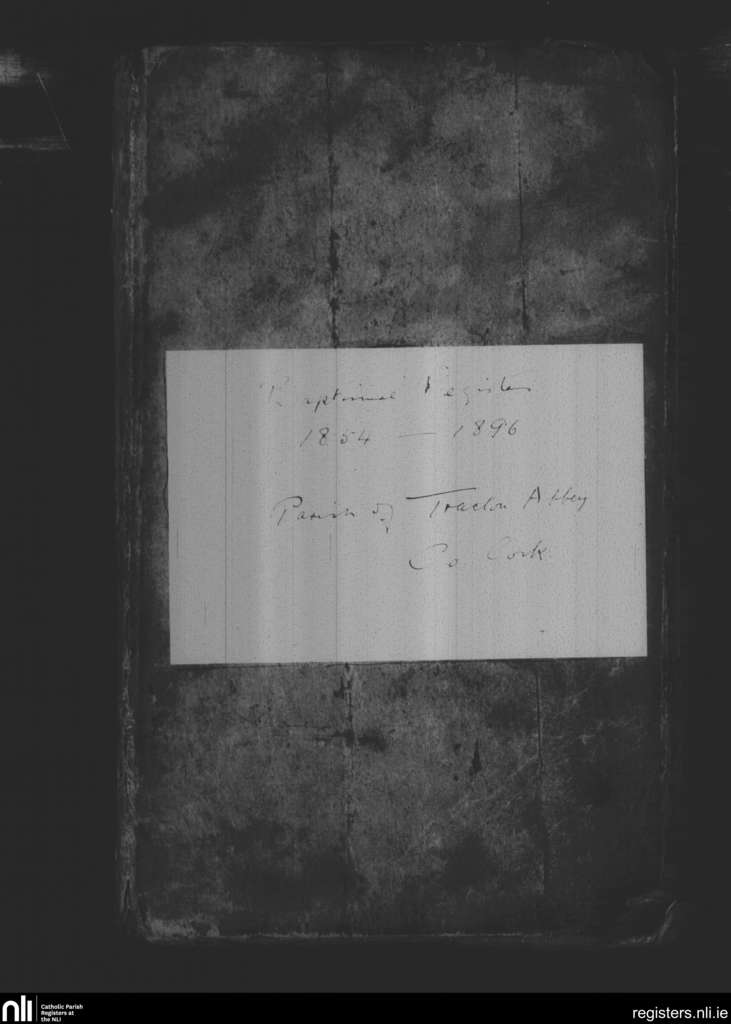 Baptismal Register
1854 — 1896
Parish of Tracton Abbey
Co Cork
nli
Catholic Parish
Registers at
the NLI
registers.nli.ie